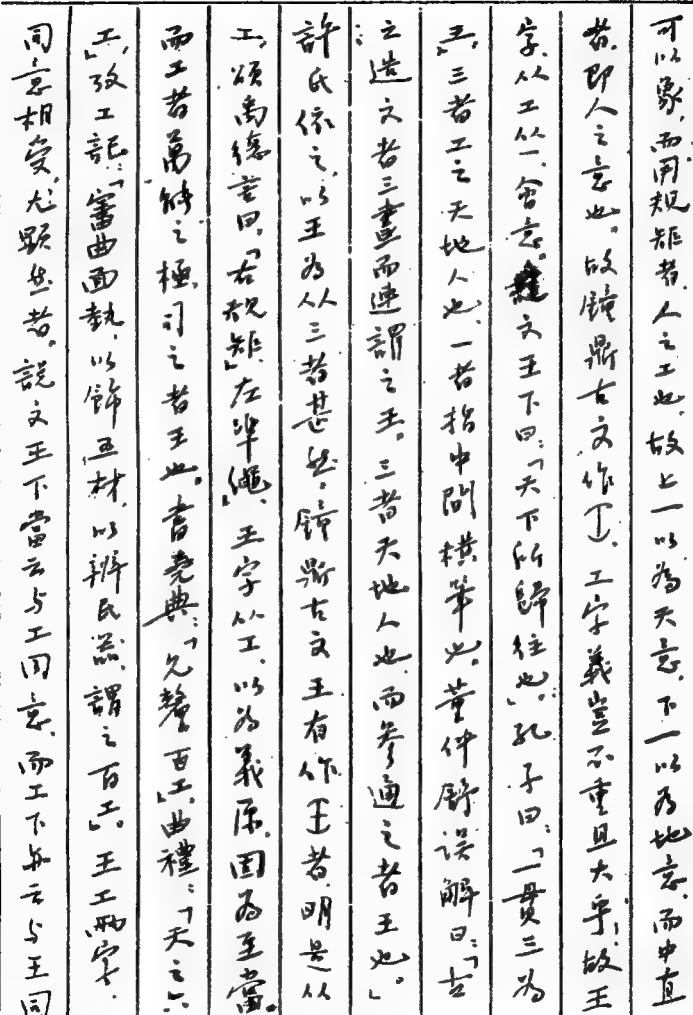 可以象，而用規矩者，人之工也，故上一以為天意，下一以為地意，而中直
者，即人之意也。故鐘鼎古文作工，工字義豈不重且大乎，故王
字，从工从一，會意。文王下曰：「天下所歸往也」，孔子曰：「一貫三為
王」，三者工之天地人也，一者指中間橫筆也。董仲舒誤解曰：「古
之造文者三畫而連謂之王。三者天地人也，而參通之者王也。」
許氏依之，以王為从三者甚然，鐘鼎古文王有作王者，明是从
工，頌禹德言曰，「右規矩」左準繩，王字从工，以為義原，固為至當。
而工者萬能之極，司之者王也。書堯典：「允釐百工」，曲禮：「天之六
工」，攷工記：「審曲面埶，以飭五材，以辨民器，謂之百工」。王工兩字，
同意相受，尤顯然者。說文王下當云与工同意，而工下無云与王同